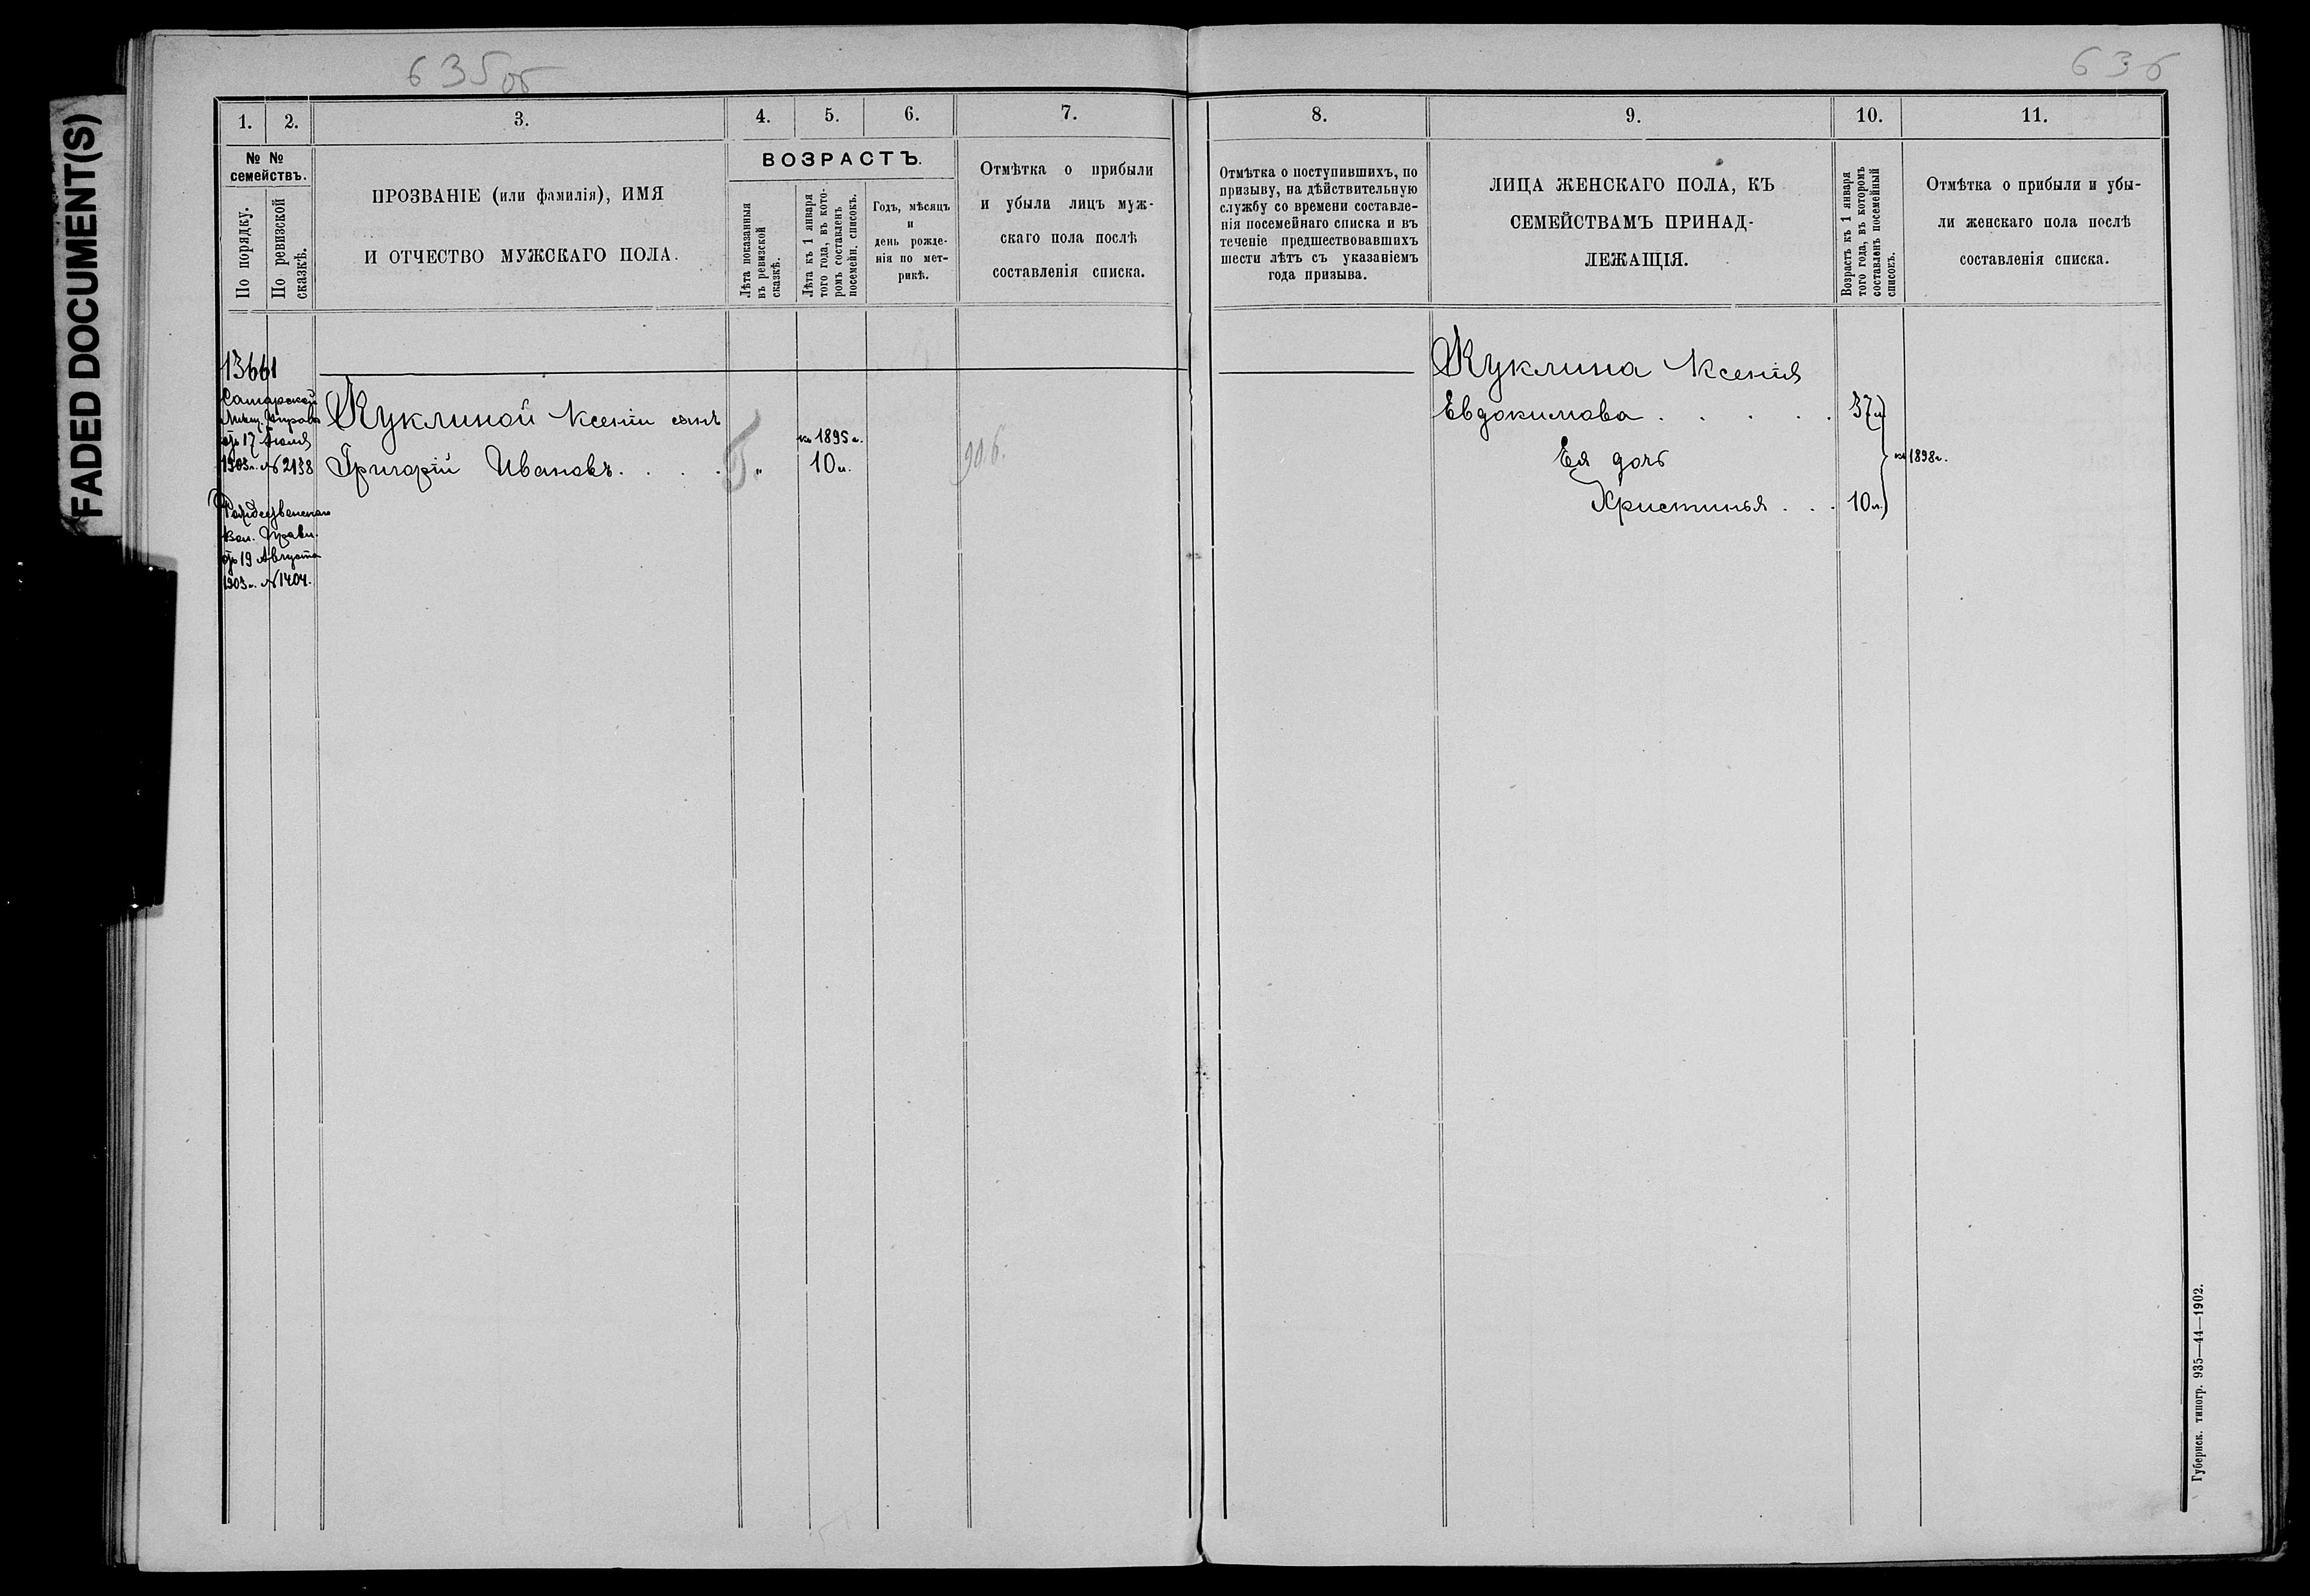 635об
636
FADED DOCUMENT(S)
1.
2.
3.
4.
5.
6.
7.
8.
9.
10.
11.
№ №
семействъ.
По порядку.
По ревизской
сказкѣ.
ПРОЗВАНІЕ (или фамилія), ИМЯ
И ОТЧЕСТВО МУЖСКАГО ПОЛА.
ВОЗРАСТЪ.
Лѣта показанныя
въ ревизской
сказкѣ.
Лѣта къ 1 января
того года, въ кото-
ромъ составленъ
посемейн. списокъ.
Годъ, мѣсяцъ
и
день рожде-
нія по мет-
рикѣ.
Отмѣтка о прибыли
и убыли лицъ муж-
скаго пола послѣ
составленія списка.
Отмѣтка о поступившихъ, по
призыву, на дѣйствительную
службу со времени составле-
нія посемейнаго списка и въ
теченіе предшествовавшихъ
шести лѣтъ съ указаніемъ
года призыва.
ЛИЦА ЖЕНСКАГО ПОЛА, КЪ
СЕМЕЙСТВАМЪ ПРИНАД-
ЛЕЖАЩІЯ.
Возрастъ къ 1 января
того года, въ которомъ
составленъ посемейный
списокъ.
Отмѣтка о прибыли и убы-
ли женскаго пола послѣ
составленія списка.
13661
Самарской
Мѣщ. Управы
отъ 17 Іюня
1903 г. № 2138
Рождественскаго
Вол. Правл.
отъ 19 Августа
1903 г. № 1404.
Куклиной Ксеніи сынъ
Григорій Ивановъ. . . .
"
къ 1895 г.
10 л.
90.б.
Куклина Ксенія
Евдокимова . . . . . 37 л
Ея дочь
Христинья . . . 10 л.
къ 1898 г.
Губернск. типогр. 935—44—1902.